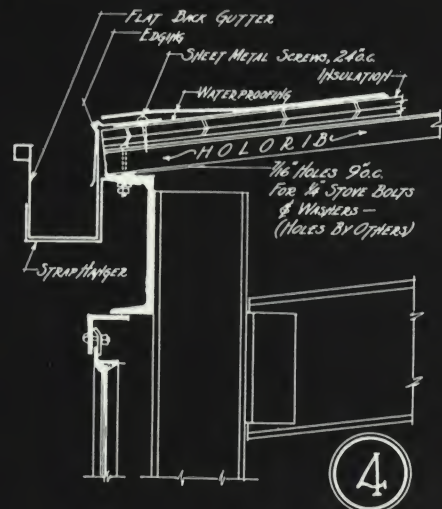 FLAT BACK GUTTER
EDGING
SHEET METAL SCREWS, 24"O.C.
INSULATION
WATERPROOFING
HOLORIB
7/16" HOLES 9"O.C.
FOR 1/4" STOVE BOLTS
& WASHERS —
(HOLES BY OTHERS)
STRAP HANGER
4